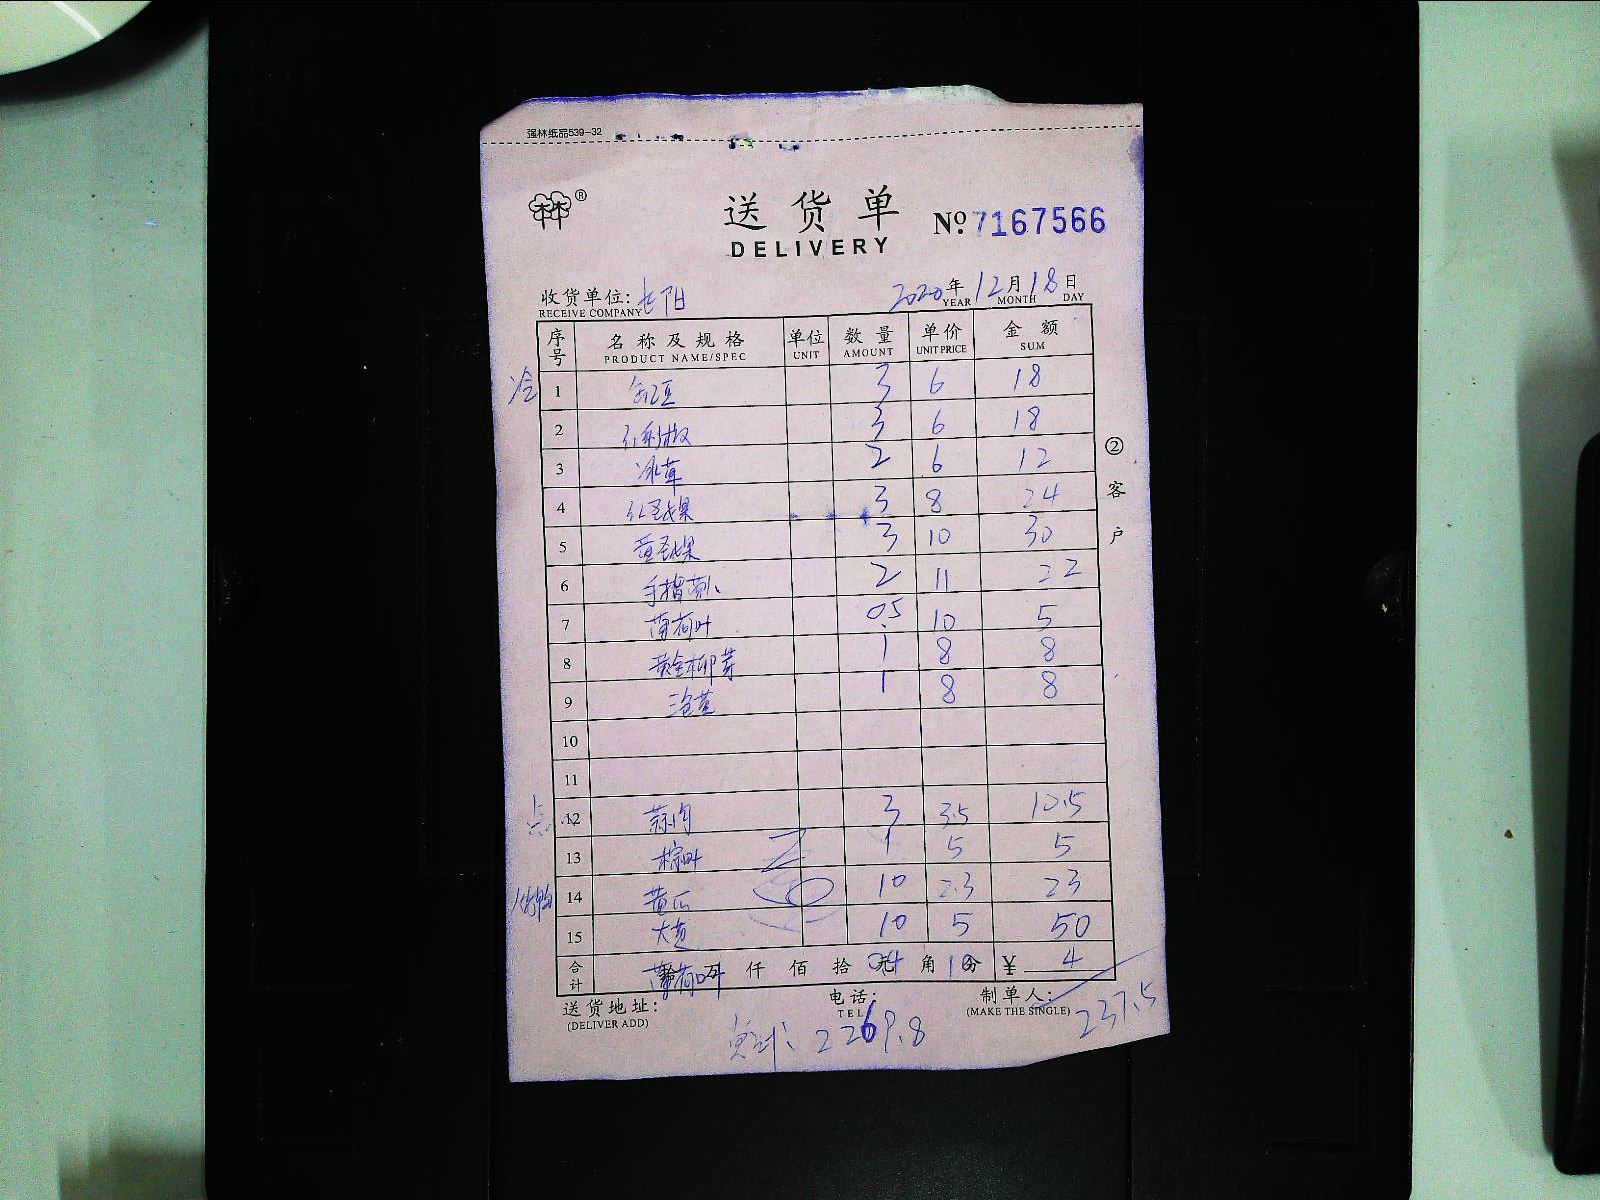 强林纸品539-32
林林®
送货单 Nº 7167566
DELIVERY
收货单位: 长阳 2020年12月18日
RECEIVE COMPANY YEAR MONTH DAY
序号 名称及规格 单位 数量 单价 金额
PRODUCT NAME/SPEC UNIT AMOUNT UNIT PRICE SUM
冷 1 豆 3 6 18
2 3 6 18
3 冰草 2 6 12
4 红圣女果 3 8 24
5 黄圣女果 3 10 30
6 手指萝卜 2 11 22
7 薄荷叶 0.5 10 5
8 黄金柳芽 1 8 8
9 1 8 8
10
11
点 12 蒜肉 3 3.5 10.5
13 棕叶 1 5 5
烧腊 14 黄瓜 10 2.3 23
15 大 10 5 50
合计 薄荷叶 拾 万 仟 佰 拾 元 0.4 角 10 分 ¥ 4
②客户
送货地址: 电话: 制单人:
(DELIVER ADD) TEL (MAKE THE SINGLE) 237.5
总计: 2269.8